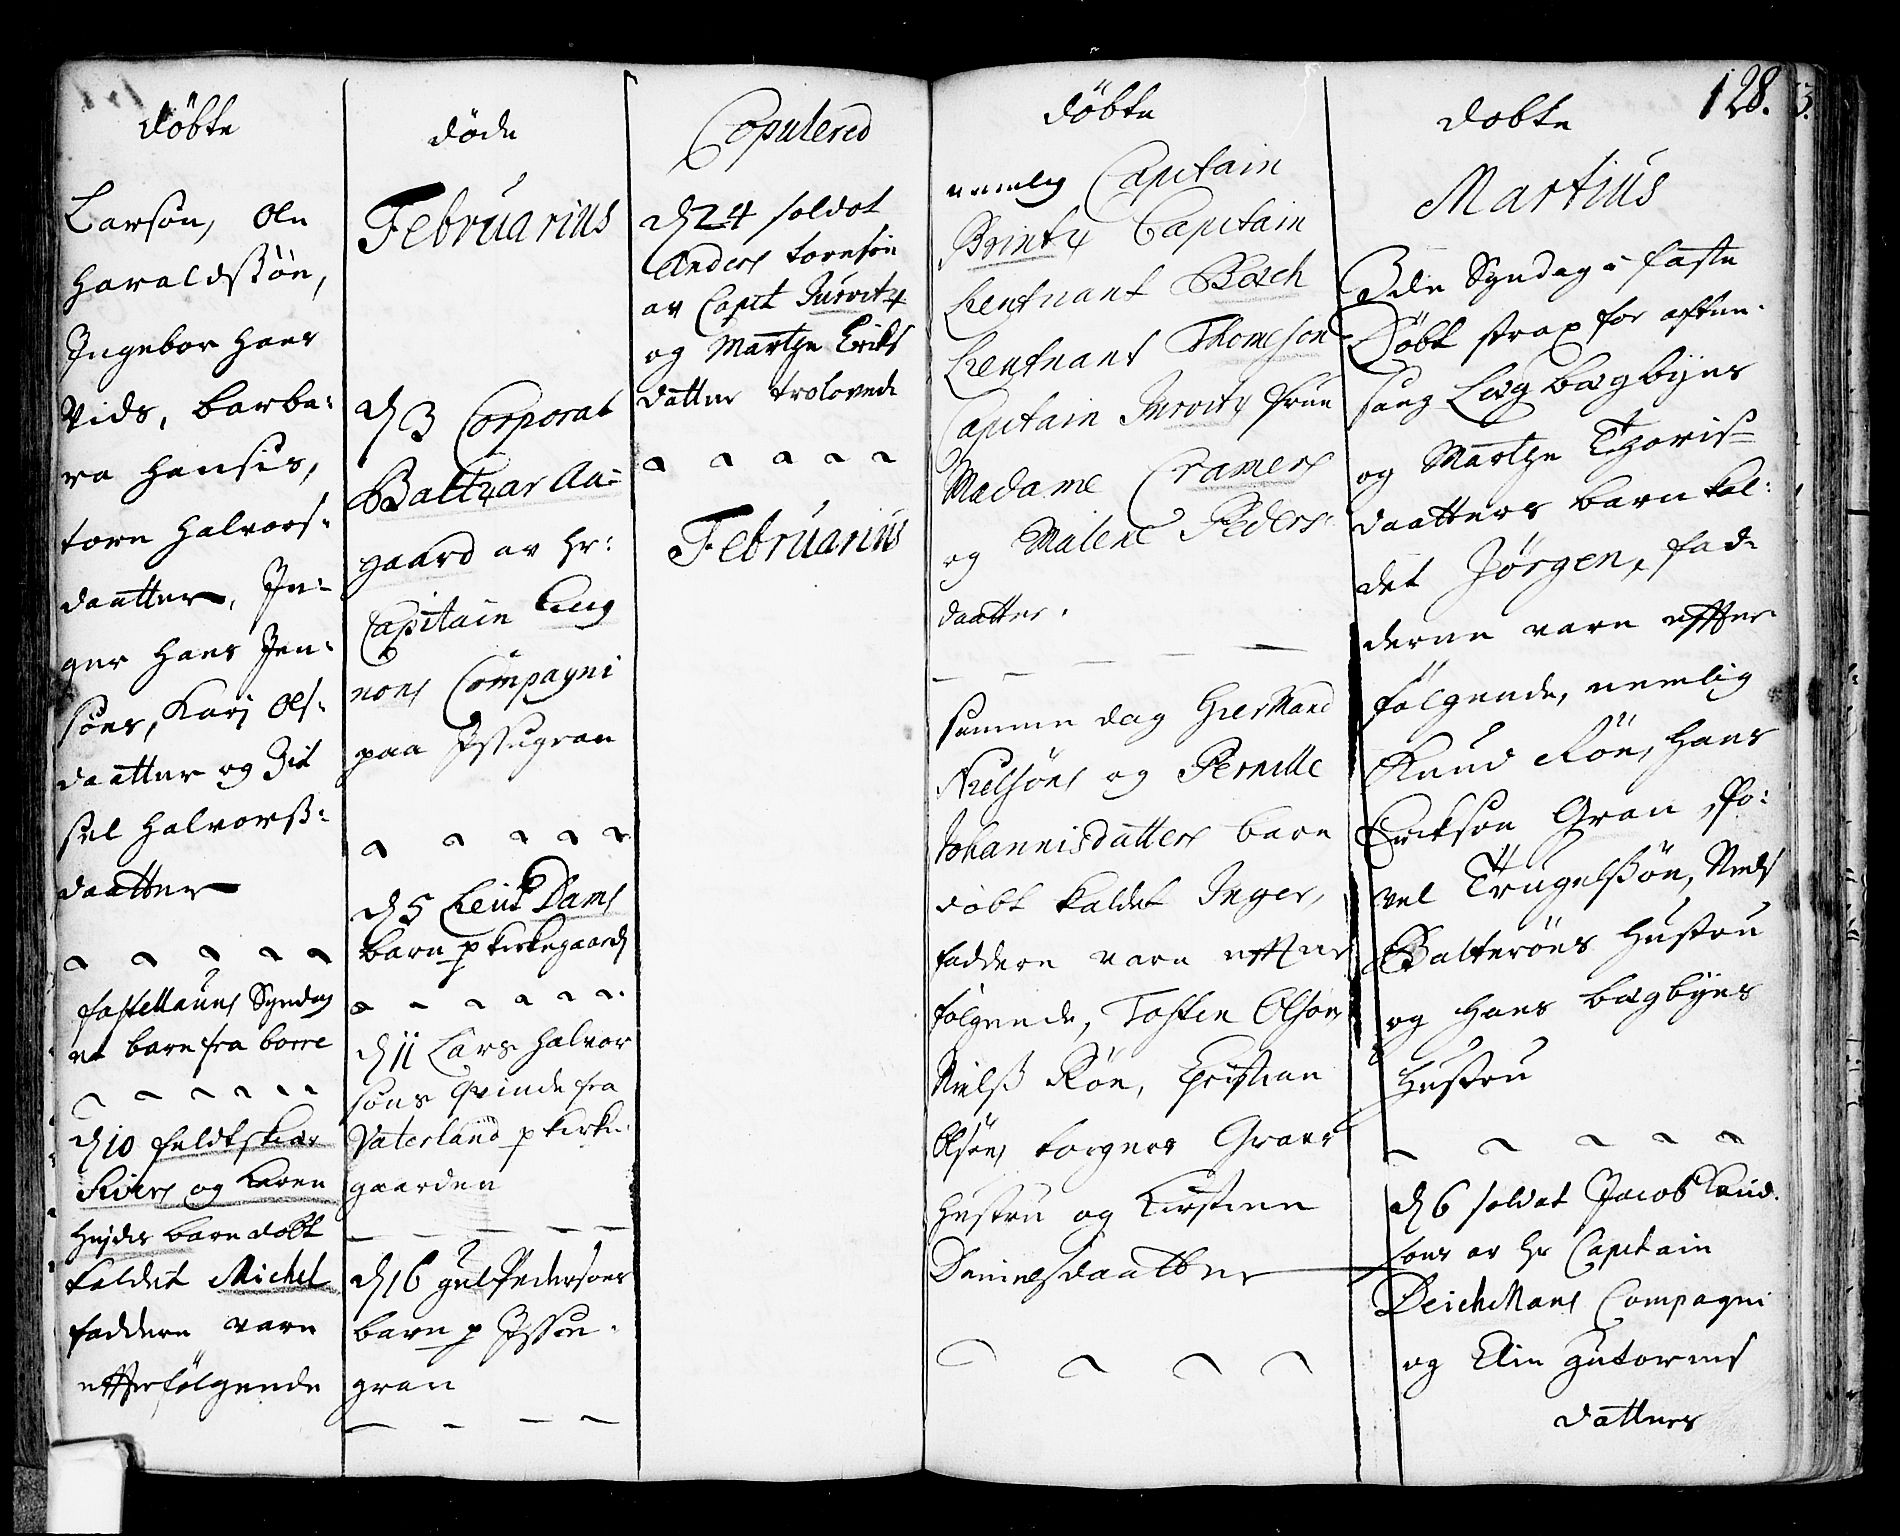 döbte
Larsøn, Ole
Haraldssøn,
Ingebor Hans
Vids, barba:
ra Hansis,
torn Halvors-
daatter, In:
ger Hans Jen:
söns, Karj Ols-
daatter og Sit
sel Halvorss:
daatter
fastellauns Syndag
et barn fra borre
d 10 feldtskiær
Rivers og Karen
barn dobt
kaldet Michel
faddere vare
efterfølgende
døde
Februarius
d 3 Corporal
Baltzar Aa=
gaard av Hr:
Capitain
nons Compagni
paa
d 5 Leut Dams
barn p kirkegaard
d 11 Lars Halvor
søns Qvinde fra
Vaterland p kirke-
gaarden
d 16 gul Pedersøns
barn p
gran
Copulered
d 24 soldat
Anders tornsøn
av Capit Jurvitz
og Marthe Eriks
datter trolovede
Februarius
döbte
nemlig Capitain
Brintz Capitain
Leutnant Bech
Leutnant Thomeson
Capitain Jurvitz frue
Madame Cramers
og Malene Peders
daatter.
samme dag Giermand
Nielsøns og Pernille
Johannisdatters barn
döbt kaldet Inger,
faddere vare effter
følgende, Tosten Olsøn,
Nielss Røn, Christian
Olsøns torgner Graver
Hustru og Kirstine
Danielsdaatter
128.
dobte
Martius
3die Syndag i faste
Döbt strax for aften-
sang Lag bagbÿes
og Marthe Thoriss=
daatters barn kal:
det Jörgen, fad-
derne vare effter
følgende, nemlig
Knud Röe, Hans
Erikson Gran, Po:
vel Trugelssøn, Niels
Balterøns Hustru
og Hans bagbÿes
Hustru
d 6 soldat Jacob Knud-
søns av Hr Capitain
Deichmans Compagni
og Elin gutorms
datters